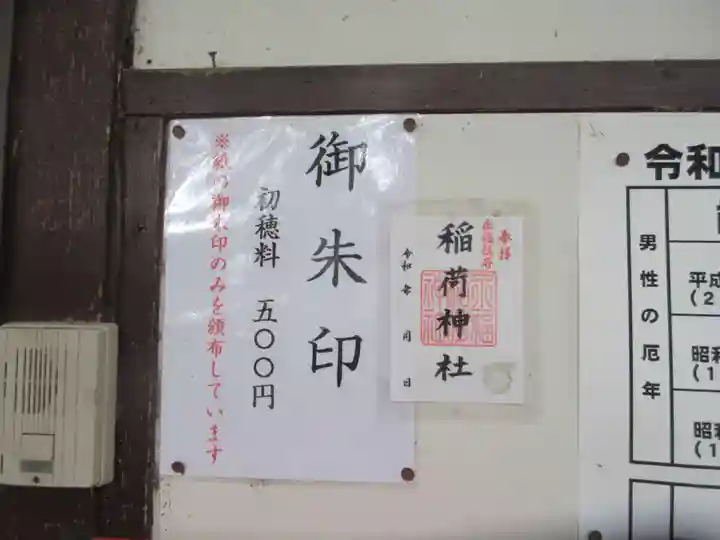 御朱印
初穂料 五〇〇円
※紙の御朱印のみを頒布しています
奉拝
稲荷神社
令和 年 月 日
令和
男性の厄年
平成
昭和
昭和